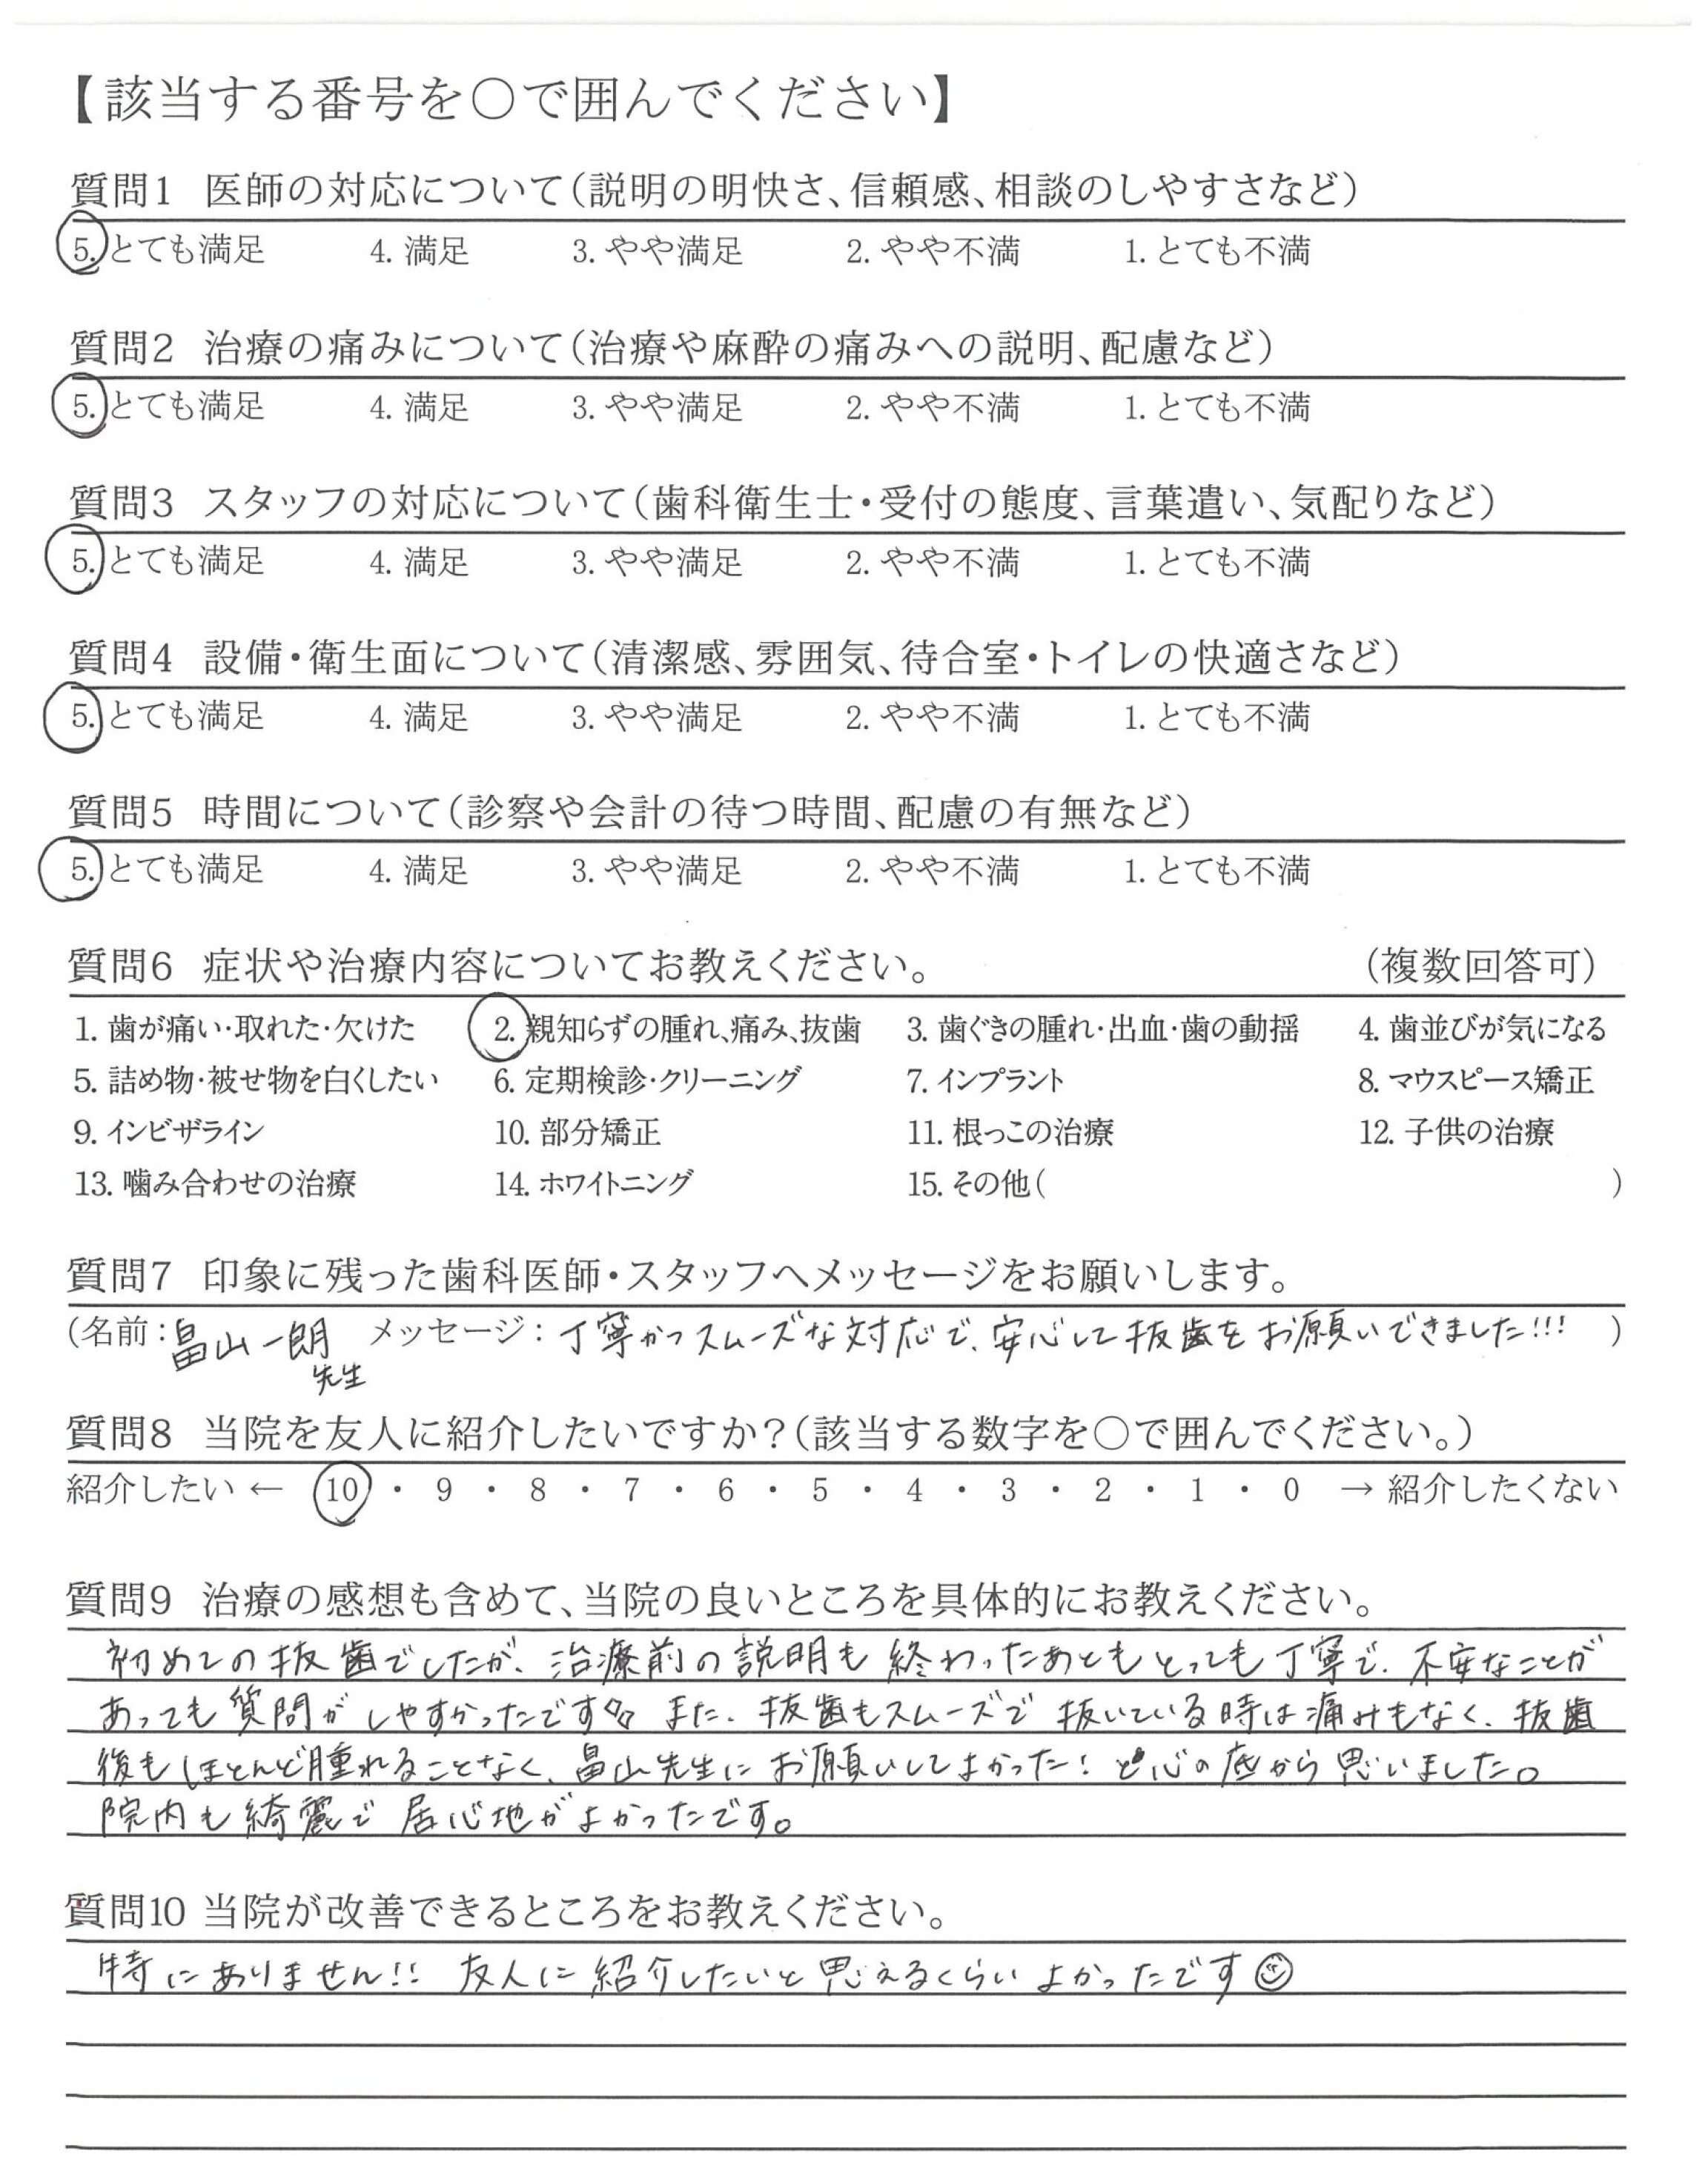 【該当する番号を○で囲んでください】
質問1 医師の対応について（説明の明快さ、信頼感、相談のしやすさなど）
5. とても満足 4. 満足 3. やや満足 2. やや不満 1. とても不満
質問2 治療の痛みについて（治療や麻酔の痛みへの説明、配慮など）
5. とても満足 4. 満足 3. やや満足 2. やや不満 1. とても不満
質問3 スタッフの対応について（歯科衛生士・受付の態度、言葉遣い、気配りなど）
5. とても満足 4. 満足 3. やや満足 2. やや不満 1. とても不満
質問4 設備・衛生面について（清潔感、雰囲気、待合室・トイレの快適さなど）
5. とても満足 4. 満足 3. やや満足 2. やや不満 1. とても不満
質問5 時間について（診察や会計の待つ時間、配慮の有無など）
5. とても満足 4. 満足 3. やや満足 2. やや不満 1. とても不満
質問6 症状や治療内容についてお教えください。 （複数回答可）
1. 歯が痛い・取れた・欠けた 2. 親知らずの腫れ、痛み、抜歯 3. 歯ぐきの腫れ・出血・歯の動揺 4. 歯並びが気になる
5. 詰め物・被せ物を白くしたい 6. 定期検診・クリーニング 7. インプラント 8. マウスピース矯正
9. インビザライン 10. 部分矯正 11. 根っこの治療 12. 子供の治療
13. 噛み合わせの治療 14. ホワイトニング 15. その他（ ）
質問7 印象に残った歯科医師・スタッフへメッセージをお願いします。
（名前：畠山一朗 メッセージ：丁寧かつスムーズな対応で、安心して抜歯をお願いできました!!! ）
先生
質問8 当院を友人に紹介したいですか？（該当する数字を○で囲んでください。）
紹介したい ← 10 ・ 9 ・ 8 ・ 7 ・ 6 ・ 5 ・ 4 ・ 3 ・ 2 ・ 1 ・ 0 → 紹介したくない
質問9 治療の感想も含めて、当院の良いところを具体的にお教えください。
初めての抜歯でしたが、治療前の説明も終わったあともとっても丁寧で、不安なことが
あっても質問がしやすかったです また、抜歯もスムーズで抜いている時は痛みもなく、抜歯
後もほとんど腫れることなく、畠山先生にお願いしてよかった！と心の底から思いました。
院内も綺麗で居心地がよかったです。
質問10 当院が改善できるところをお教えください。
特にありません!! 友人に紹介したいと思えるくらいよかったです☺